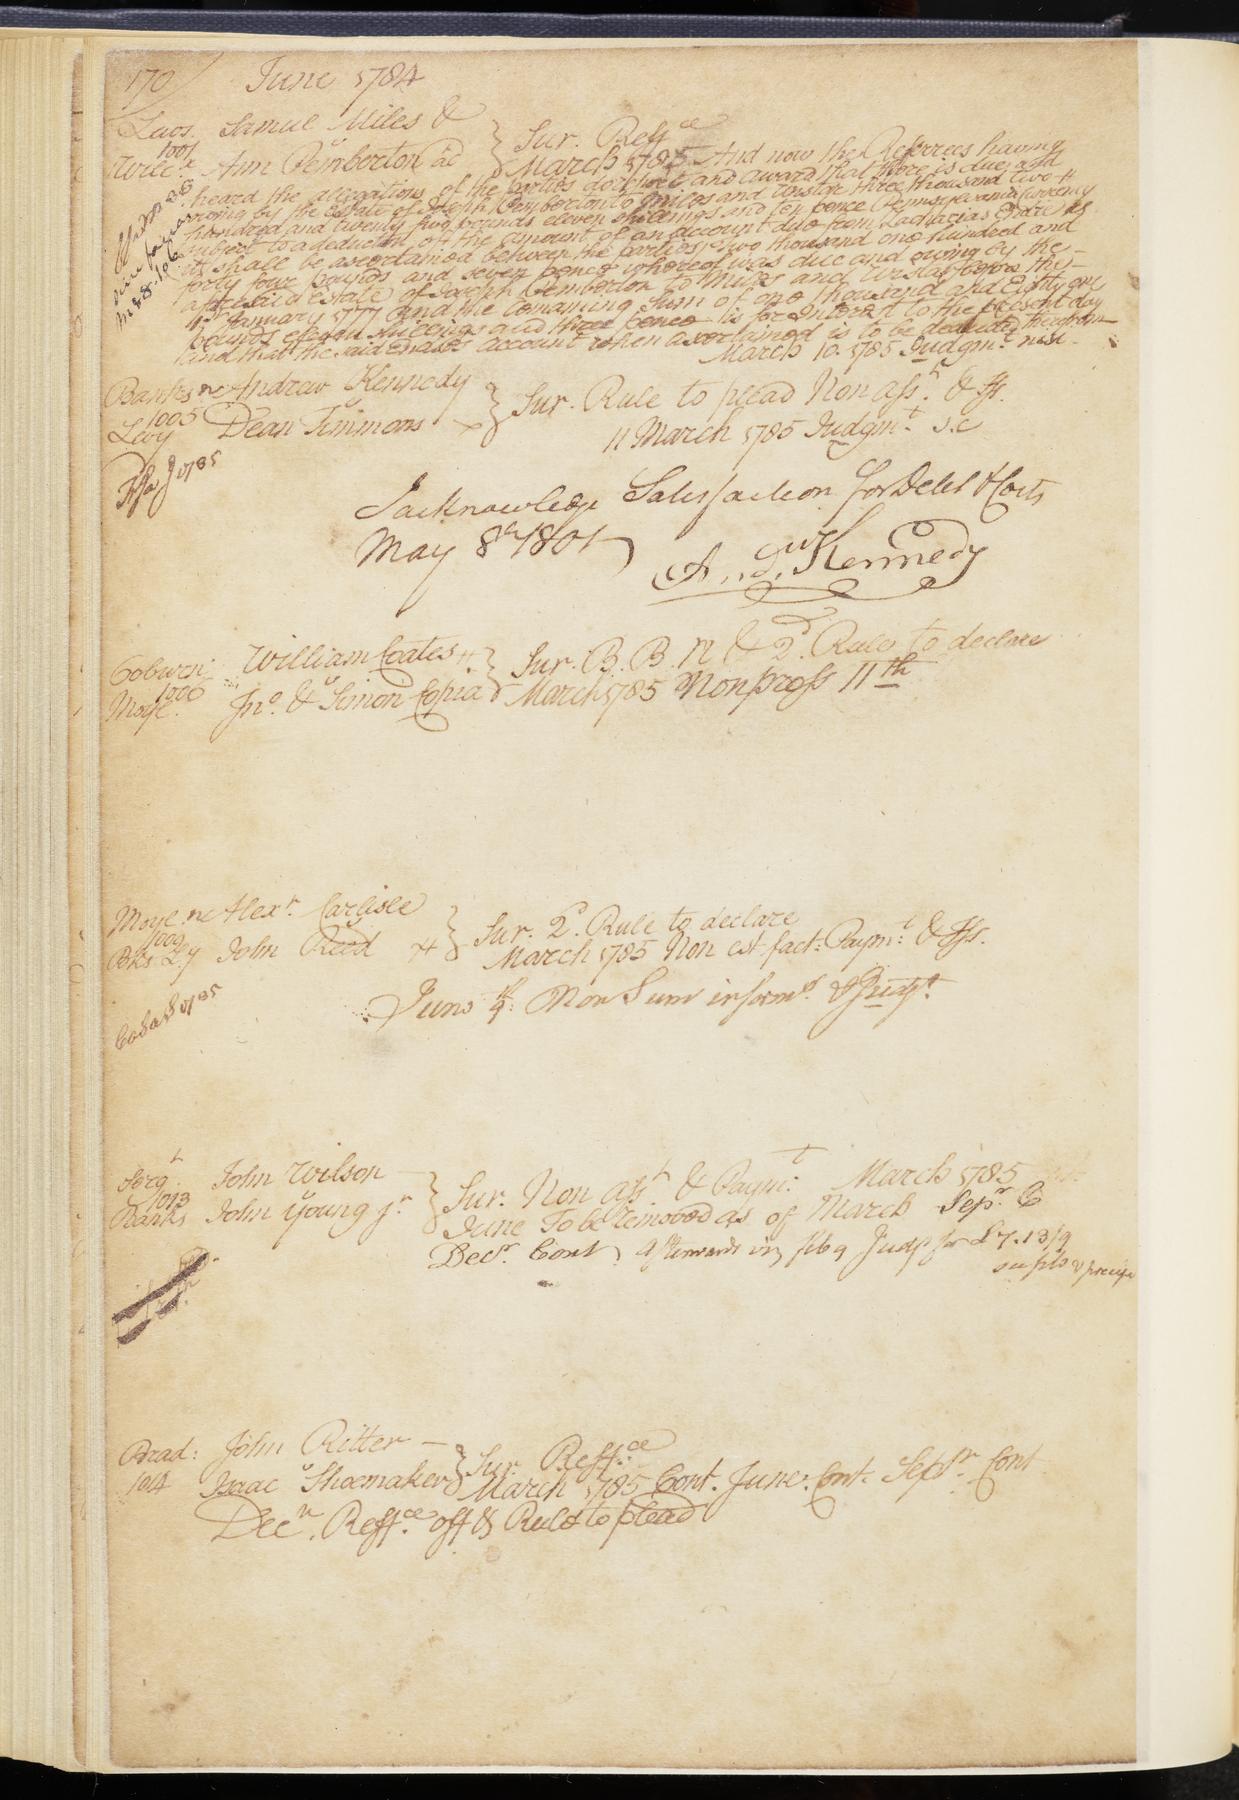 170 June 1784
Samuel Miles &
1001 } Sur. Reffce
Wilcx Ann Pemberton ad } March 1785 And now the Referrees having
heard the allegations of the parties do report and award that there is due and
owing by the Estate of Joseph Pemberton to Miles and Wistar three thousand two
hundred and twenty two pounds eleven shillings and ten pence Pennsylvania Currency
subject to a deduction of the amount of an account due from Zacharias Endre as
it shall be ascertained between the parties, two thousand one hundred and
forty four pounds and seven pence whereof was due and owing by the
aforesaid estate of Joseph Pemberton to Miles and Wistar before the
1st January 1777 and the remaining sum of one thousand and Eighty one
pounds eleven shillings and three pence is for Interest to the present day
and that the said Endres account when ascertained is to be deducted therefrom
March 10. 1785 Judgmt. nisi
Bankes ne Andrew Kennedy
1005 } Sur. Rule to plead Non asst. & Iss.
Levy Dean Timmons } 11 March 1785 Judgmt. s.c
Fifa J 1785
I acknowledge Satisfaction for Debt & Costs
May 8th 1801 Andw. Kennedy
Coburn William Coates } Sur. B. B. N & 2d. Rule to declare
1006
Moye. Jno. & Simon Copia } March 1785 Nonpross 11th
Moyl. ne Alexr. Carlisle } Sur. 2d. Rule to declare
1009
Bks Ly John Reed } March 1785 Non est fact: Paymt. & Iss.
Casa S 1785
June 4th: Non Sum informs. & Judgt.
Sergt. John Wilson } Sur. Non asst. & Paymt. March 1785
1013
Banks John Young jr. } June To be removed as of March Sepr. C
Decr. Cont, Afterwards viz feb 9 Judgt for £7.13/9
see fils & precipe
Brad: John Ritter } Sur. Reffce
1014 Isaac Shoemaker } March 1785 Cont. June. Cont. Sepr. Cont
Decr. Reffce. off & Rule to plead